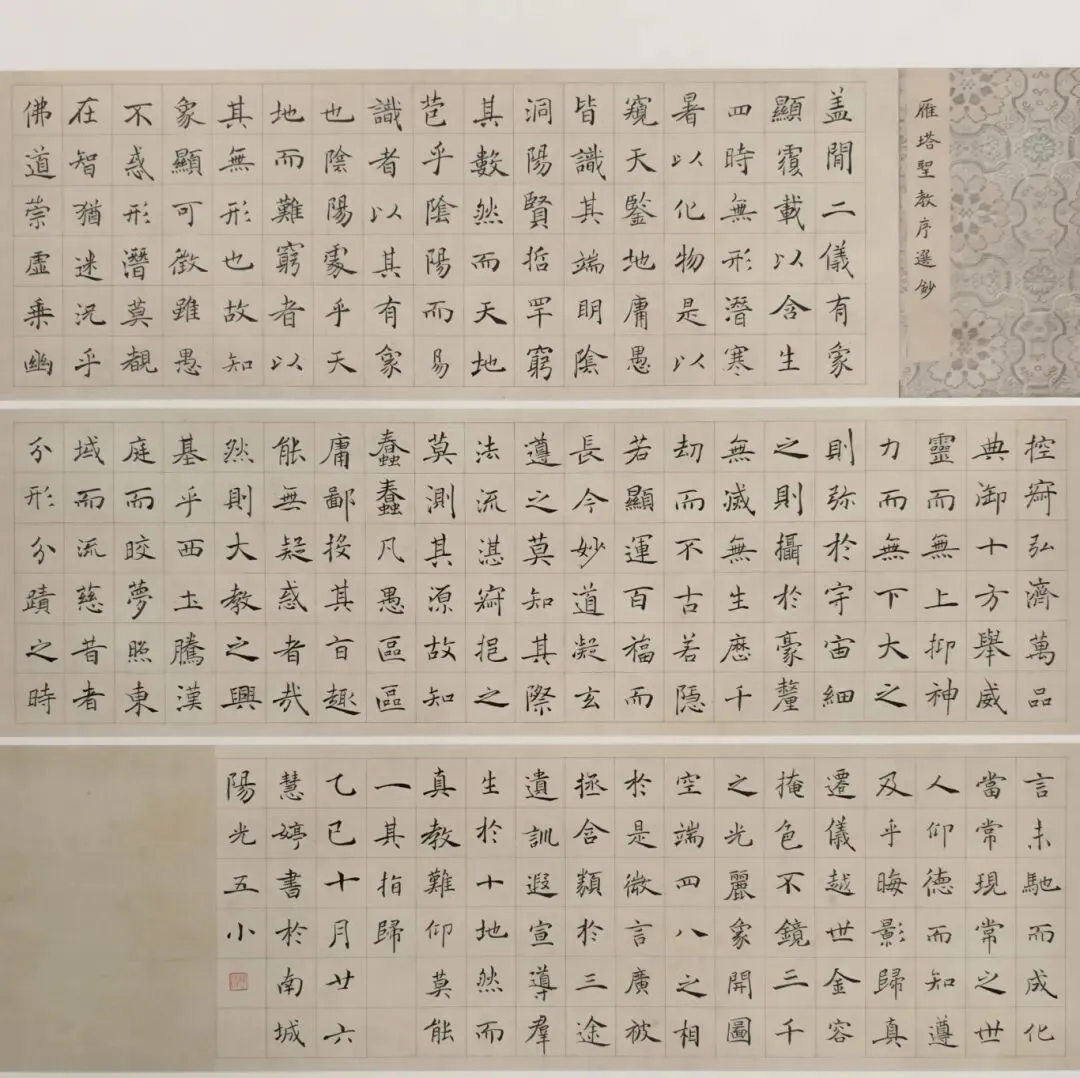 雁塔聖教序選鈔
盖聞二儀有象
顯覆載以含生
四時無形潛寒
暑以化物是以
窺天鑒地庸愚
皆識其端明陰
洞陽賢哲罕窮
其數然而天地
苞乎陰陽而易
識者以其有象
也陰陽處乎天
地而難窮者以
其無形也故知
象顯可徵雖愚
不惑形潛莫覩
在智猶迷況乎
佛道崇虛乘幽
控寂弘濟萬品
典御十方舉威
靈而無上抑神
力而無下大之
則弥於宇宙細
之則攝於豪釐
無滅無生歷千
劫而不古若隱
若顯運百福而
長今妙道凝玄
遵之莫知其際
法流湛寂挹之
莫測其源故知
蠢蠢凡愚區區
庸鄙投其旨趣
能無疑惑者哉
然則大教之興
基乎西土騰漢
庭而皎夢照東
域而流慈昔者
分形分蹟之時
言未馳而成化
當常現常之世
人仰德而知遵
及乎晦影歸真
遷儀越世金容
掩色不鏡三千
之光麗象開圖
空端四八之相
於是微言廣被
拯含類於三途
遺訓遐宣導羣
生於十地然而
真教難仰莫能
一其指歸
乙巳十月廿六
慧婷書於南城
陽光五小